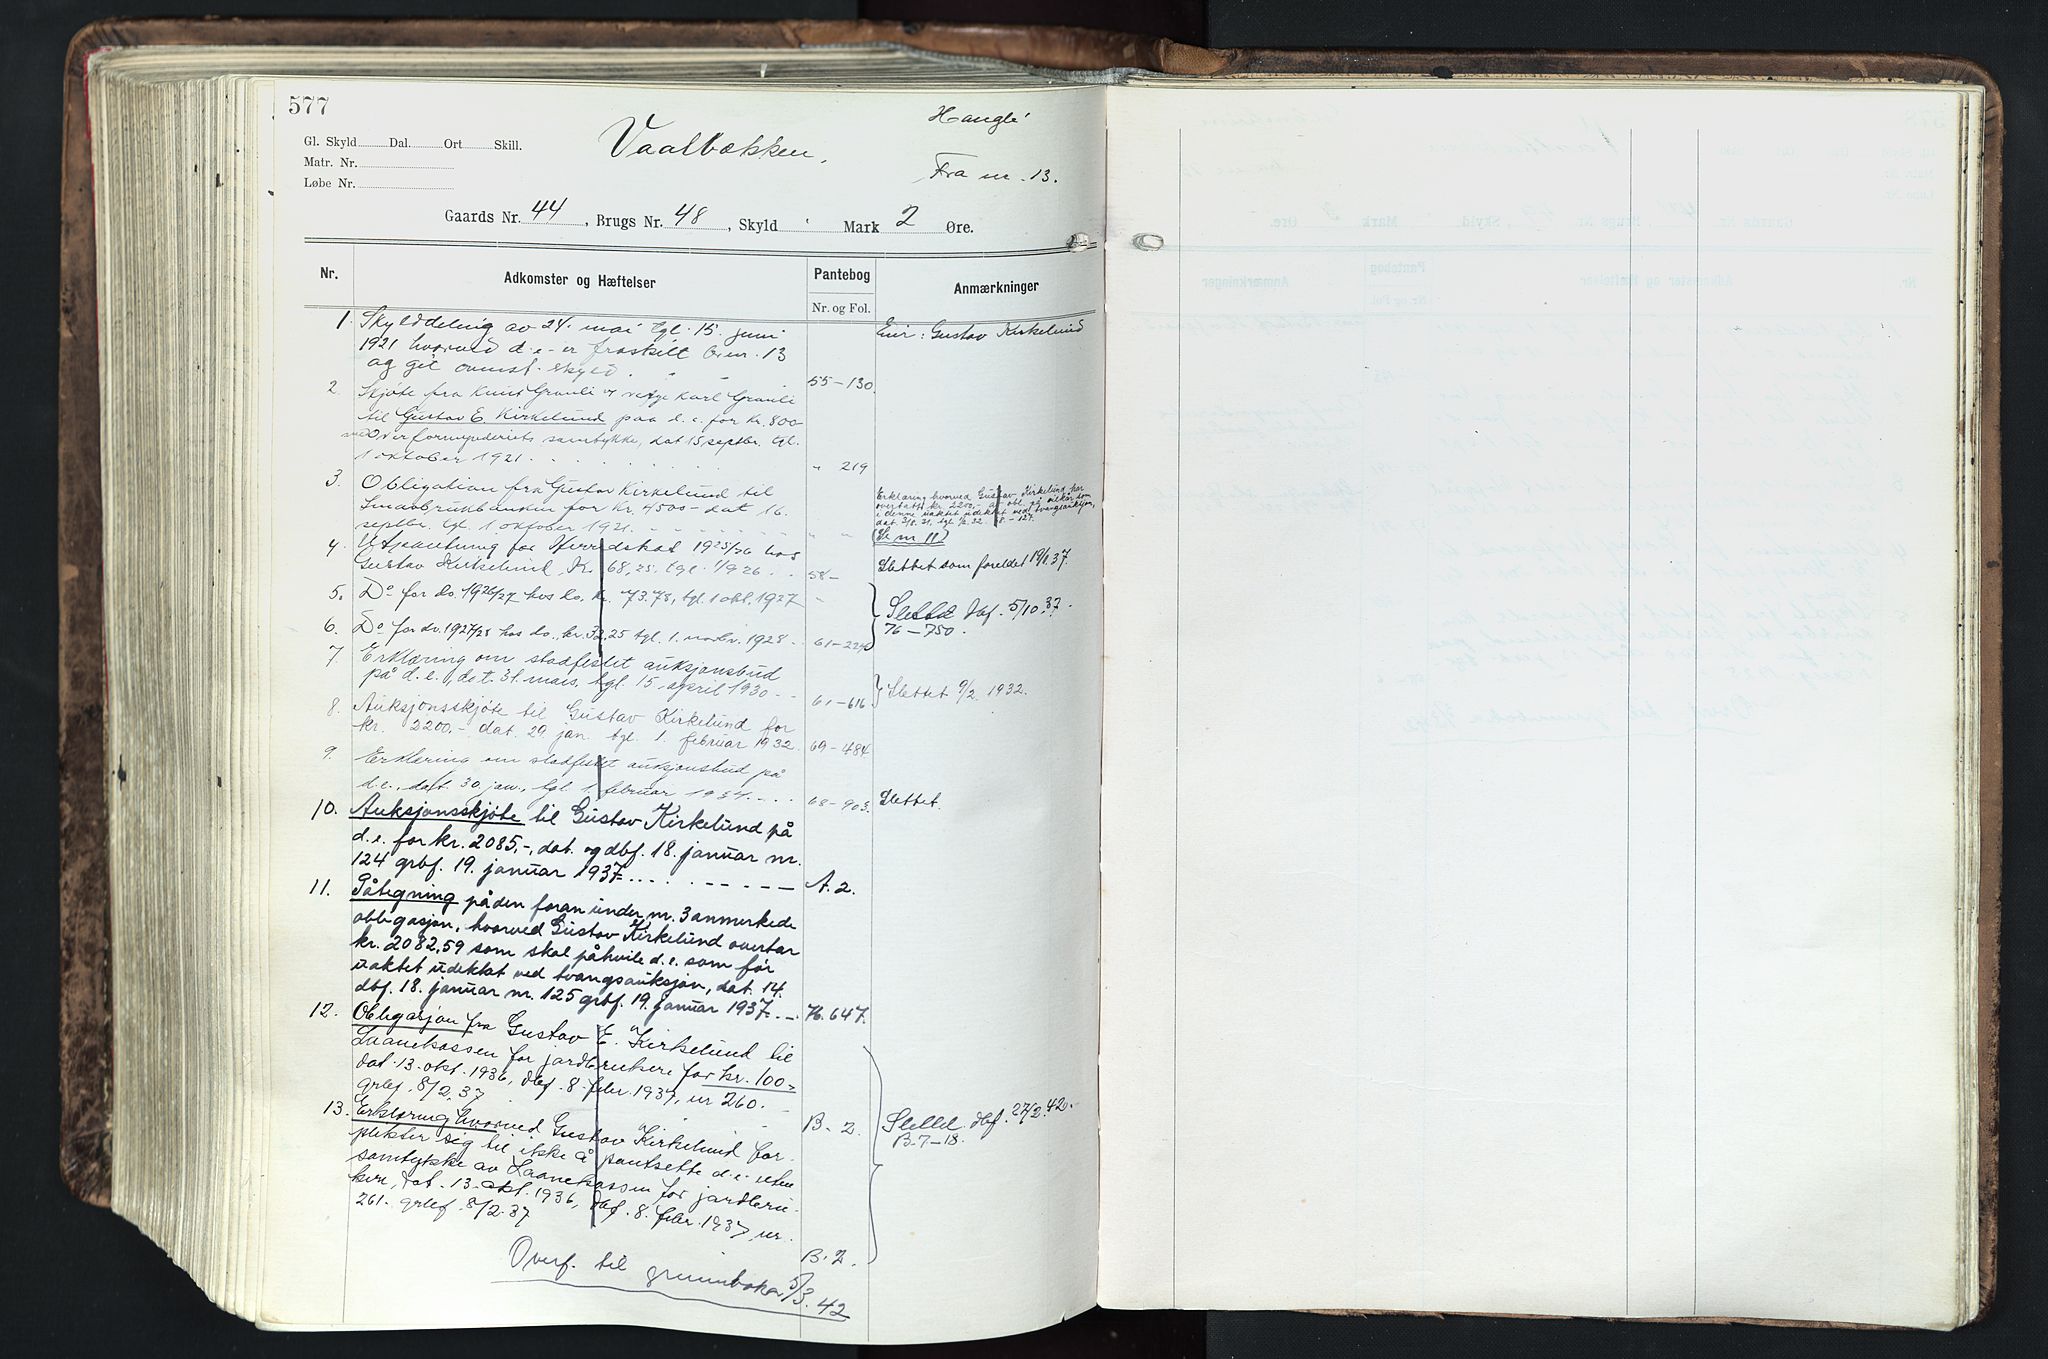 577
Haugli
Gl. Skyld Dal. Ort Skill.
Vaalbækken,
Matr. Nr.
Løbe Nr.
Fra nr. 13.
Gaards Nr. 44, Brugs Nr. 48, Skyld Mark 2 Øre.
Nr. Adkomster og Hæftelser Pantebog Anmærkninger
Nr. og Fol.
1. Skylddeling av 24. mai tgl. 15. juni Eier: Gustav Kirkelund
1921 hvorved d.e. er fraskilt b.nr. 13
og git ovenst. skyld. 55-130.
2. Skjøte fra Knut Granli og verge Karl Granli
til Gustav E. Kirkelund paa d.e. for kr. 800
med overformynderiets samtykke, dat 15 septbr. tgl.
1 oktober 1921. " 219
3. Obligation fra Gustav Kirkelund til
Smaabrukbanken for kr. 4500- dat 16.
septbr. tgl. 1 oktober 1921. " "
Erklæring hvorved Gustav Kirkelund har
overtatt kr. 2200,- av obl. på vilkår som
i denne uaktet udekket ved tvangsauksjon,
dat. 3/8. 31, tgl. 1/2. 32. 68-127.
(Se nr 11)
4. Utpantning for Herredskat 1925/26 hos
Gustav Kirkelund, Kr. 68,25, tgl. 1/1926. 58- Slettet som foreldet 19/1.37.
5. Do for do. 1926/27 hos do. kr. 73.78, tgl. 1 okt. 1927 " Slettet dbf. 5/10.37.
76-750.
6. Do for do. 1927/28 hos do., kr. 32,25 tgl. 1. novbr. 1928. 61-229
7. Erklæring om stadfestet auksjonsbud
på d.e., dat. 31. mars, tgl. 15. april 1930 61-616 Slettet 9/2. 1932.
8. Auksjonsskjøte til Gustav Kirkelund for
kr. 2200,- dat. 29. jan. tgl. 1. februar 1932. 69-484
9. Erklæring om stadfestet auksjonsbud på
d.e., dat. 30. jan., tgl. 1. februar 1934. 68-903. Slettet.
10. Auksjonsskjøte til Gustav Kirkelund på
d.e. for kr. 2085,-, dat. og dbf. 18. januar nr.
124 grbf. 19. januar 1937. A. 2.
11. Påtegning på den foran under nr. 3 anmerkede
obligasjon, hvorved Gustav Kirkelund overtar
kr. 2082,59 som skal påhvile d.e. som før
uaktet udekket ved tvangsauksjon, dat. 14.
dbf. 18. januar nr. 125 grbf. 19. januar 1937. 76. 647.
12. Obligasjon fra Gustav E. Kirkelund til
Lånekassen for jordbrukere for kr. 100=
dat. 13. okt. 1936, dbf. 8. febr. 1937, nr 260.
grbf. 8/2.37 B. 2.
Slettet dbf. 27/2.42.
B.7-18.
13. Erklæring hvorved Gustav Kirkelund for-
plikter sig til ikke å pantsette d.e. uten
samtykke av Laanekassen for jordbru-
kere, dat. 13. okt. 1936, dbf. 8. febr. 1937, nr.
261. grbf. 8/2.37 B. 2.
Overf. til grunnboka 5/3.42